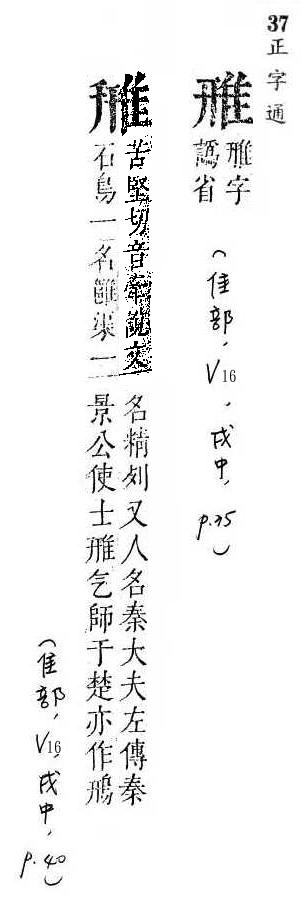 37 正字通
雃字
譌省
(隹部, V16, 戌中, p.35)
雃
苦堅切音牽說文
石鳥一名雝渠一
名精列又人名秦大夫左傳秦
景公使士雃乞師于楚亦作鳽
(隹部, V16, 戌中, p.40)